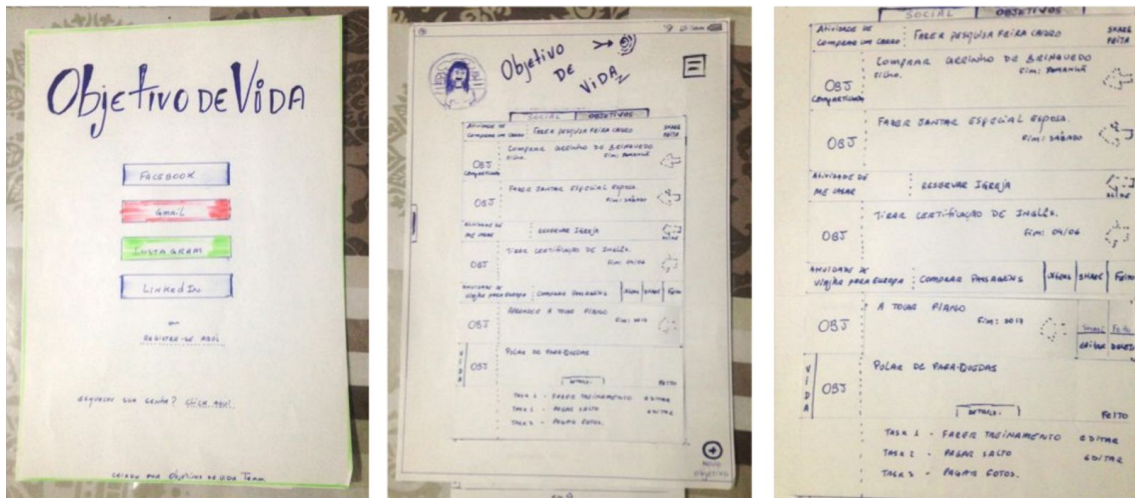 Objetivo DE ViDA
FACEBOOK
GMAIL
INSTAGRAM
LinkedIn
ou
REGISTRE-SE AQUI
esqueceu sua senha? CLICK AQUI.
CRIADO POR Objetivo DE VIDA Team
Objetivo
DE
ViDA
SOCIAL OBJETIVOS
Atividade de
Comprar um CARRO FAZER PESQUISA FEIRA CARRO SHARE
FEITA
COMPRAR CARRINHO DE BRINQUEDO
FILHO. Fim: AMANHÃ
OBJ
Compartilhado
FAZER JANTAR ESPECIAL ESPOSA.
Fim: SÁBADO
OBJ
Atividade de
ME CASAR RESERVAR IGREJA
TIRAR CERTIFICAÇÃO DE INGLÊS.
Fim: 04/06
OBJ
ATIVIDADE DE
Viajar PARA EUROPA COMPRAR PASSAGENS SHARE Feito
APRENDER A TOCAR PIANO
Fim: 2017
OBJ
VIDA
PULAR DE PARA-QUEDAS
OBJ
DETALHE.
FEITO
TASK 1 - FAZER TREINAMENTO EDITAR
TASK 2 - PAGAR SALTO EDITAR
TASK 3 - PAGAR FOTOS.
NOVO
objetivo
SOCIAL OBJETIVOS
Atividade de
Comprar um CARRO FAZER PESQUISA FEIRA CARRO SHARE
FEITA
COMPRAR CARRINHO DE BRINQUEDO
FILHO. Fim: AMANHÃ
OBJ
Compartilhado
FAZER JANTAR ESPECIAL ESPOSA.
Fim: SÁBADO
OBJ
Atividade de
ME CASAR RESERVAR IGREJA
TIRAR CERTIFICAÇÃO DE INGLÊS.
Fim: 04/06
OBJ
ATIVIDADE DE
Viajar PARA EUROPA COMPRAR PASSAGENS SHARE Feito
A TOCAR PIANO
Fim: 2017
OBJ
Feito
editar
VIDA
PULAR DE PARA-QUEDAS
OBJ
DETALHE.
FEITO
TASK 1 - FAZER TREINAMENTO EDITAR
TASK 2 - PAGAR SALTO EDITAR
TASK 3 - PAGAR FOTOS.